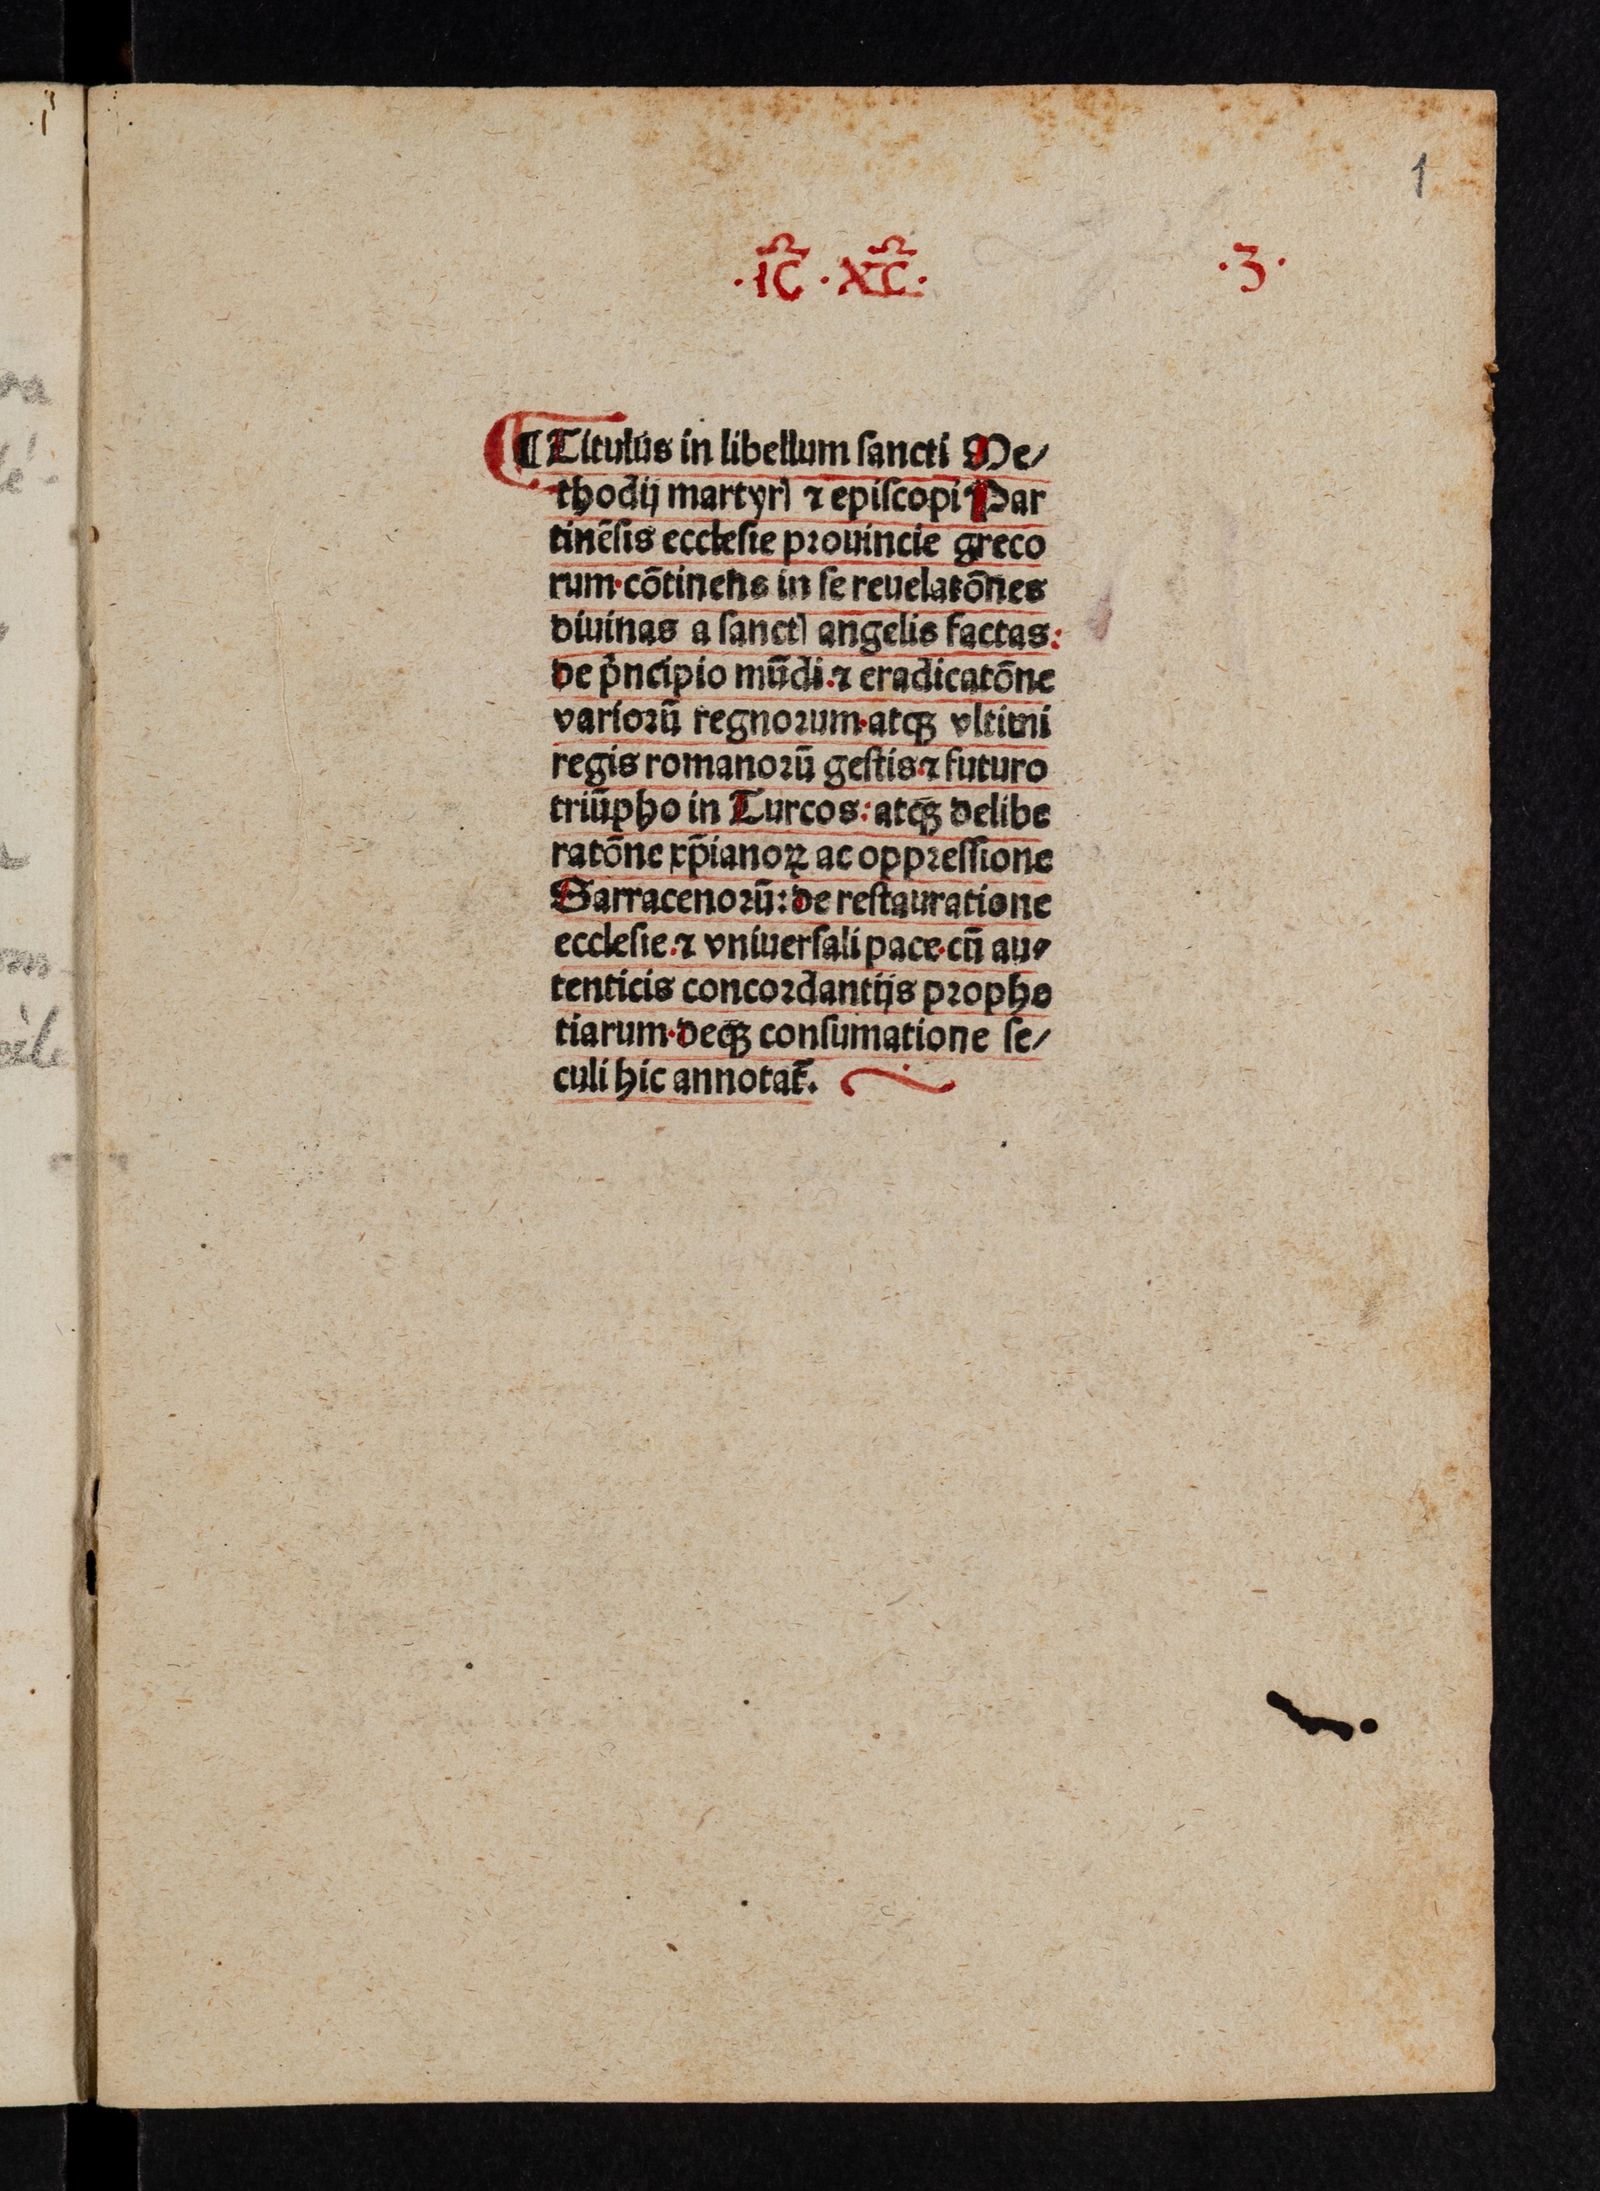 1
·IC̅·XC̅· ·3·
¶ Titulus in libellum sancti Me/
thodij martyrꝭ ⁊ episcopi Par
tinēsis ecclesie prouincie greco
rum·cōtinens in se reuelatōnes
diuinas a sanctꝭ angelis factas:
de pͥncipio mūdi.⁊ eradicatōne
variorū regnorum·atqꝫ vltimi
regis romanorū gestis·⁊ futuro
triūpho in Turcos: atqꝫ delibe
ratōne xp̄ianoꝝ ac oppressione
Sarracenorū: de restauratione
ecclesie.⁊ vniuersali pace·cū au/
tenticis concordantijs prophe
tiarum·deqꝫ consumatione se/
culi hic annotat̄.